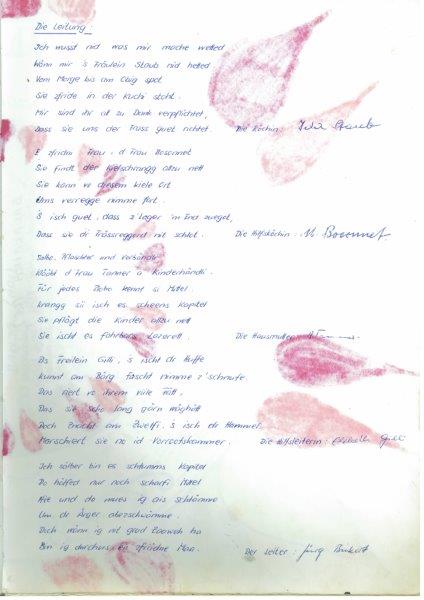 Die Leitung:
Ich wusst nid was mir mache wetted
Wänn mir 's Fräulein Staub nid hetted
Vom Morge bis am Obig spot
Sie zfride in der Kuchi stoht.
Mir sind ihr al zu Dank verpflichtet,
Dass sie uns der Frass guet richtet. Die Köchin:
E zfridni Frau, d Frau Bosonnet
Sie findt der allzu nett
Sie kann vo diesem kiele Ort
nümme fort.
S isch guet, dass z'Lager 'm End zueget,
Dass sie di nit schlot. Die Hilfsköchin: M. Bosonnet
Salbe, Pflaschter und Verbändli
Wäbt d Frau Tanner a Kinderhändli.
Für jedes Bobo kennt si Mittel
Krangg si isch es scheens Kapitel
Sie pflägt die Kinder allzu nett
Sie ischt es fahrbars Lazarett. Die Hausmutter:
Ds Freilein Gilli, s ischt dr Huffe
Kunnt am Bärg fascht nimme z'schnufe.
Das fiert vo ihrem viile
Das sie scho lang gärn
Doch znacht am Zwelfi s isch dr Hammer
Marschiert sie no id Vorratskammer. Die Hilfsleiterin:
Ich sälber bin es schlimms Kapitel
Do hälfed nur noch scharfi Mittel
Hie und do mues ig ais schlämme
Um dr Ärger abezschwämme.
Doch wänn ig nit grad ha
Bin ig durchus en zfridne Maa. Der Leiter: Jürg